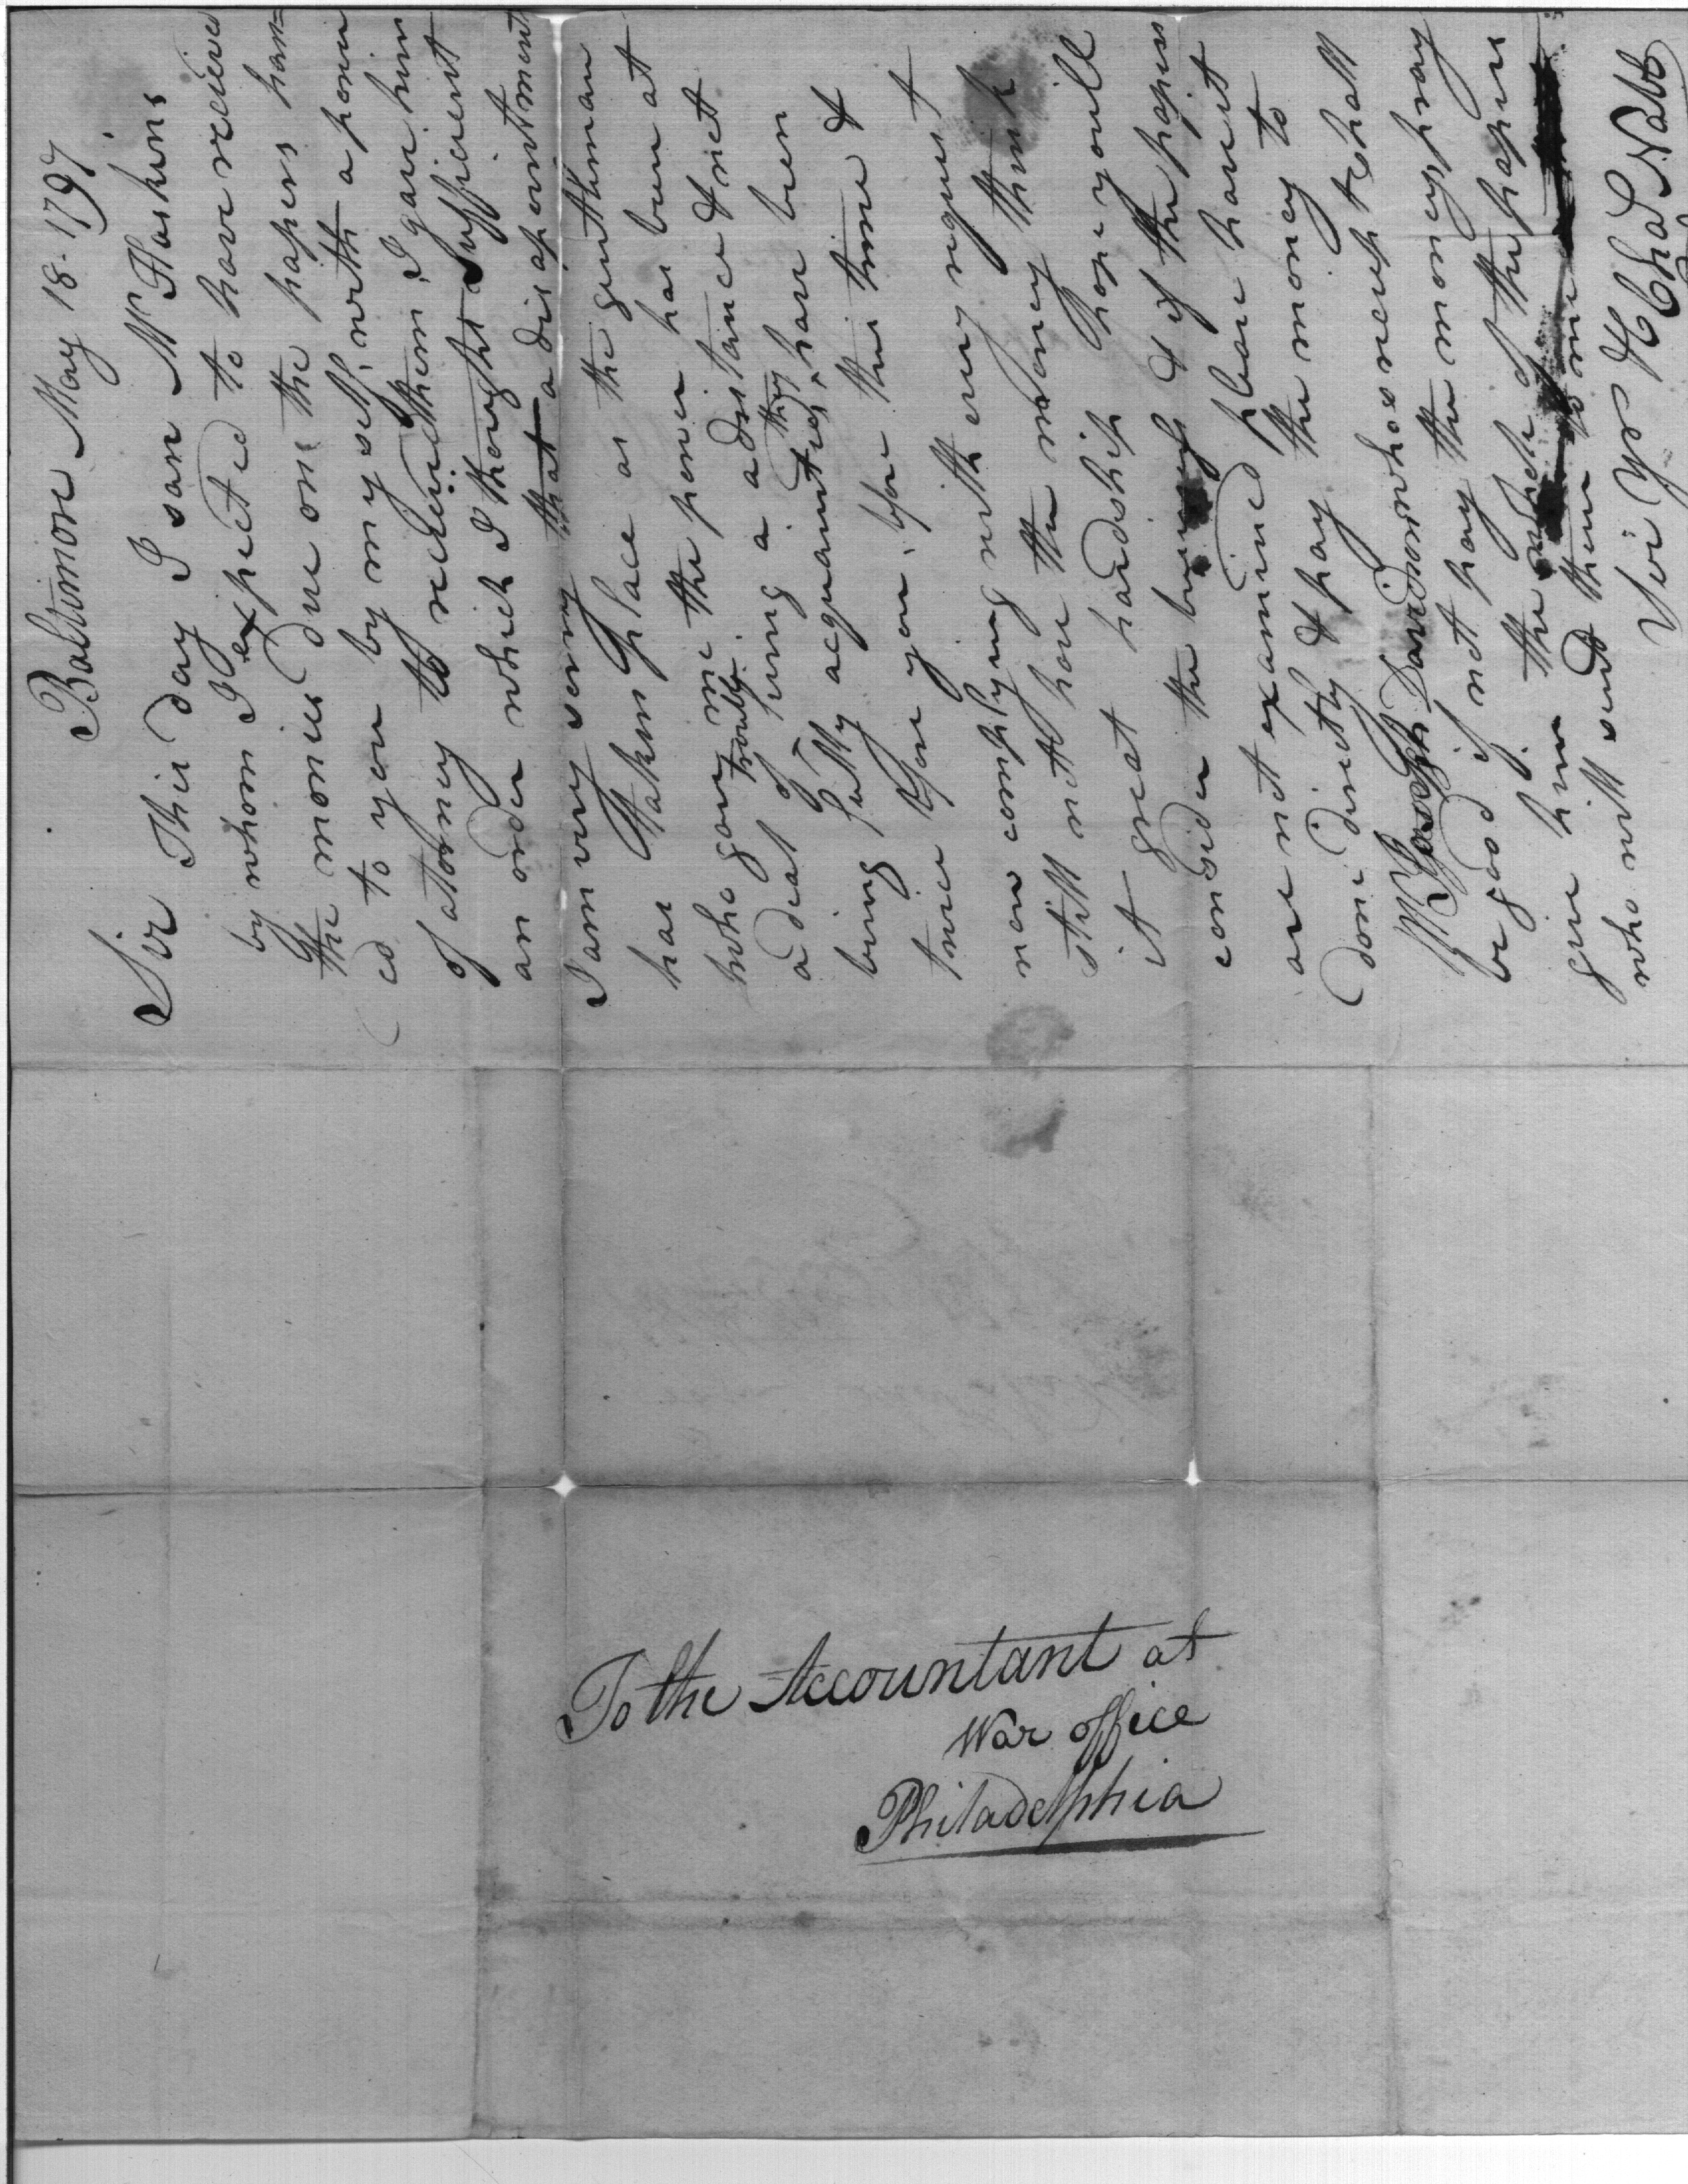 Baltimore May 18. 1797
Sir This day I saw Mr. Haskins
by whom I expected to have received
the monies due one the papers han=
ed to you by myself, with a power
of atorney to receive them, I gave him
an order which I thought sufficient
I am very sorry that a disapointment
has taken place as the gentleman
who gave me the power has been at
a deal of trouble living a adistance & not
being fully acquainted, they have been
twice before you, before this time &
now complying with every request &
still not have the money think
it great hardship hope you will
consider the & if the papers
are not examined please have it
done directly & pay the money to
Mr Joseph Davidson whos receipt shall
be good if not pay the money pray
give him the of the papers
who will send them to me
Sir Yrs &c Chas Nabb
To the Accountant at
War office
Philadelphia